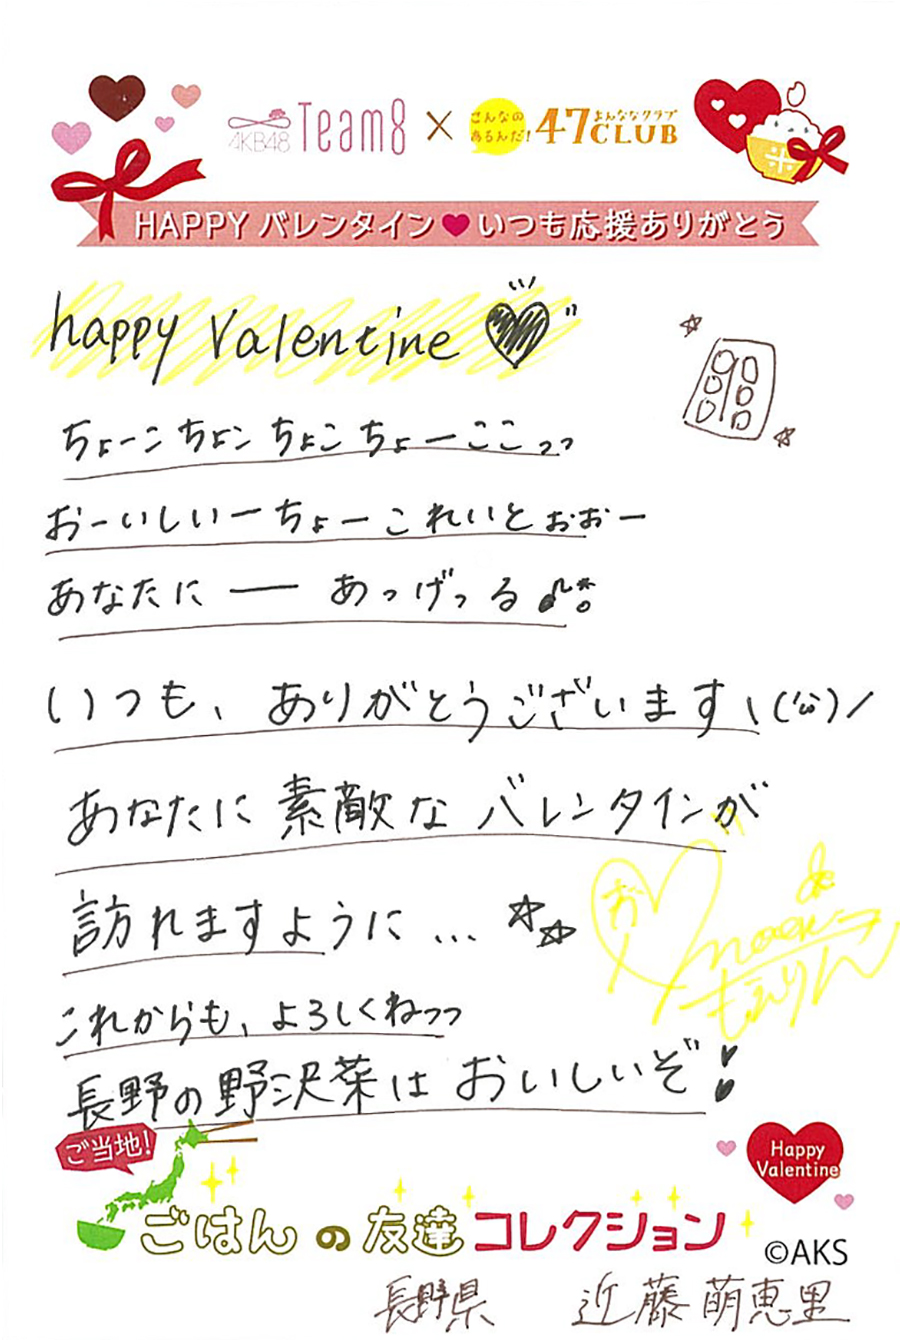 AKB48 Team8 × こんなの あるんだ! 47CLUB よんななクラブ
HAPPY バレンタイン♥いつも応援ありがとう
happy Valentine ♥
ちょーこちょこちょこちょーここっっ
おーいしいーちょーこれいとぉおー
あなたに ー あっげっる♪
いつも、ありがとうございます\(¨)/
あなたに素敵なバレンタインが
訪れますように... ☆☆
お
もえりん
これからも、よろしくねっっ
長野の野沢菜はおいしいぞ!
ご当地!
Happy
Valentine
ごはんの友達コレクション
©AKS
長野県 近藤萌恵里